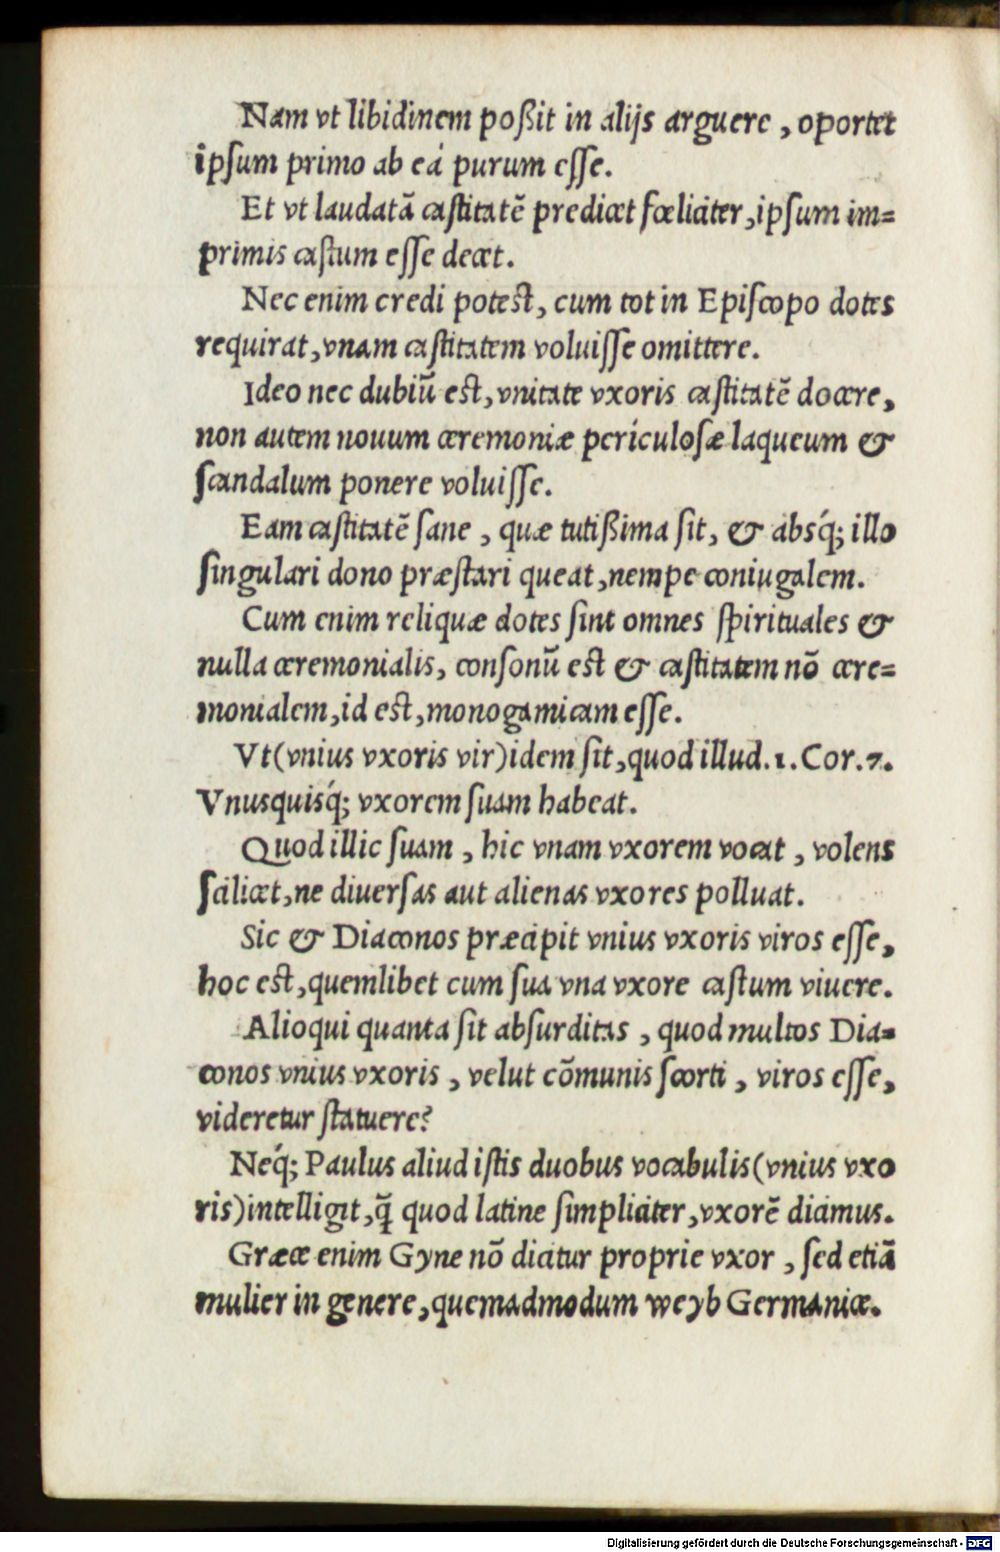 Nam vt libidinem poßit in alijs arguere, oportet
ipſum primo ab eá purum eſſe.
Et vt laudatā caſtitatē predicet fœliciter, ipſum im=
primis caſtum eſſe decet.
Nec enim credi poteſt, cum tot in Epiſcopo dotes
requirat, vnam caſtitatem voluiſſe omittere.
Ideo nec dubiū eſt, vnitate vxoris caſtitatē docere,
non autem nouum ceremoniæ periculoſæ laqueum &
ſcandalum ponere voluiſſe.
Eam caſtitatē ſane, quæ tutißima ſit, & absq́; illo
ſingulari dono præſtari queat, nempe coniugalem.
Cum enim reliquæ dotes ſint omnes ſpirituales &
nulla ceremonialis, conſonū eſt & caſtitatem nō cere=
monialem, id eſt, monogamicam eſſe.
Vt (vnius vxoris vir) idem ſit, quod illud. 1. Cor. 7.
Vnusquisq́; vxorem ſuam habeat.
Quod illic ſuam, hic vnam vxorem vocat, volens
ſcilicet, ne diuerſas aut alienas vxores polluat.
Sic & Diaconos præcipit vnius vxoris viros eſſe,
hoc eſt, quemlibet cum ſua vna vxore caſtum viuere.
Alioqui quanta ſit abſurditas, quod multos Dia=
conos vnius vxoris, velut cōmunis ſcorti, viros eſſe,
videretur ſtatuere?
Neq́; Paulus aliud iſtis duobus vocabulis (vnius vxo
ris) intelligit, q̄ quod latine ſimpliciter, vxorē dicimus.
Græce enim Gyne nō dicitur proprie vxor, ſed etiā
mulier in genere, quemadmodum weyb Germanice.
Digitalisierung gefördert durch die Deutsche Forschungsgemeinschaft - DFG